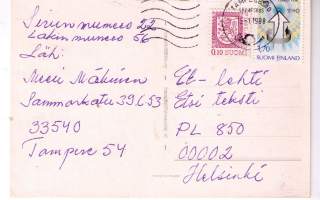 Sirien numero 22
Lakin numero 56
Lähi
Meeri Mäkinen
Sammonkatu 39.G.53
33540
Tampere 54
0,10 SUOMI
1988
1,70
SUOMI FINLAND
Et-lehti
Etsi teksti
PL 850
00002
Helsinki